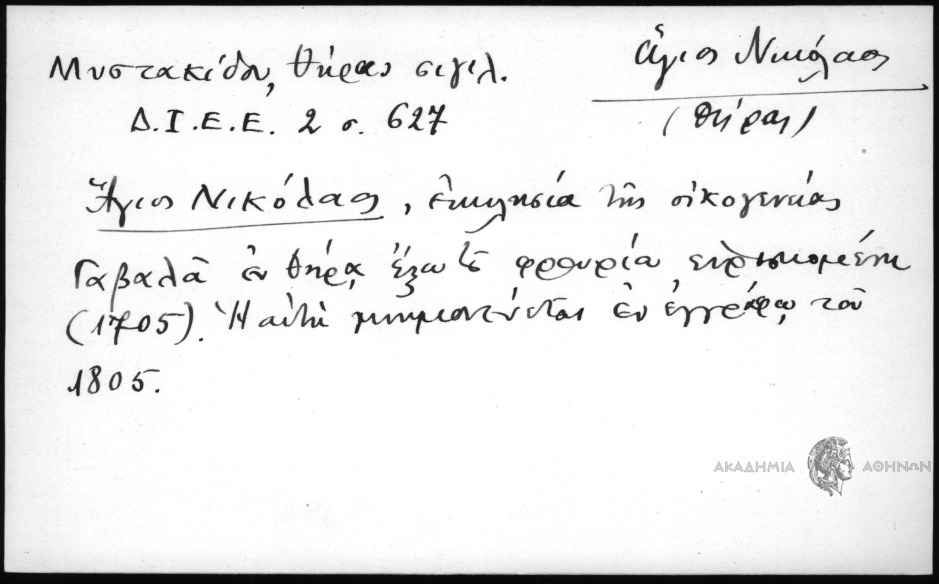 Μυστακίδου, Θήρας σιγιλ.
Δ.Ι.Ε.Ε. 2 σ. 627
Ἅγιος Νικόλαος
(Θήρας)
Ἅγιος Νικόλαος, ἐκκλησία τῆς οἰκογενείας
Γαβαλᾶ ἐν Θήρᾳ, ἔξω τοῦ φρουρίου εὑρισκομένη
(1705). Ἡ αὐτὴ μνημονεύεται ἐν ἐγγράφῳ τοῦ
1805.
ΑΚΑΔΗΜΙΑ ΑΘΗΝΩΝ